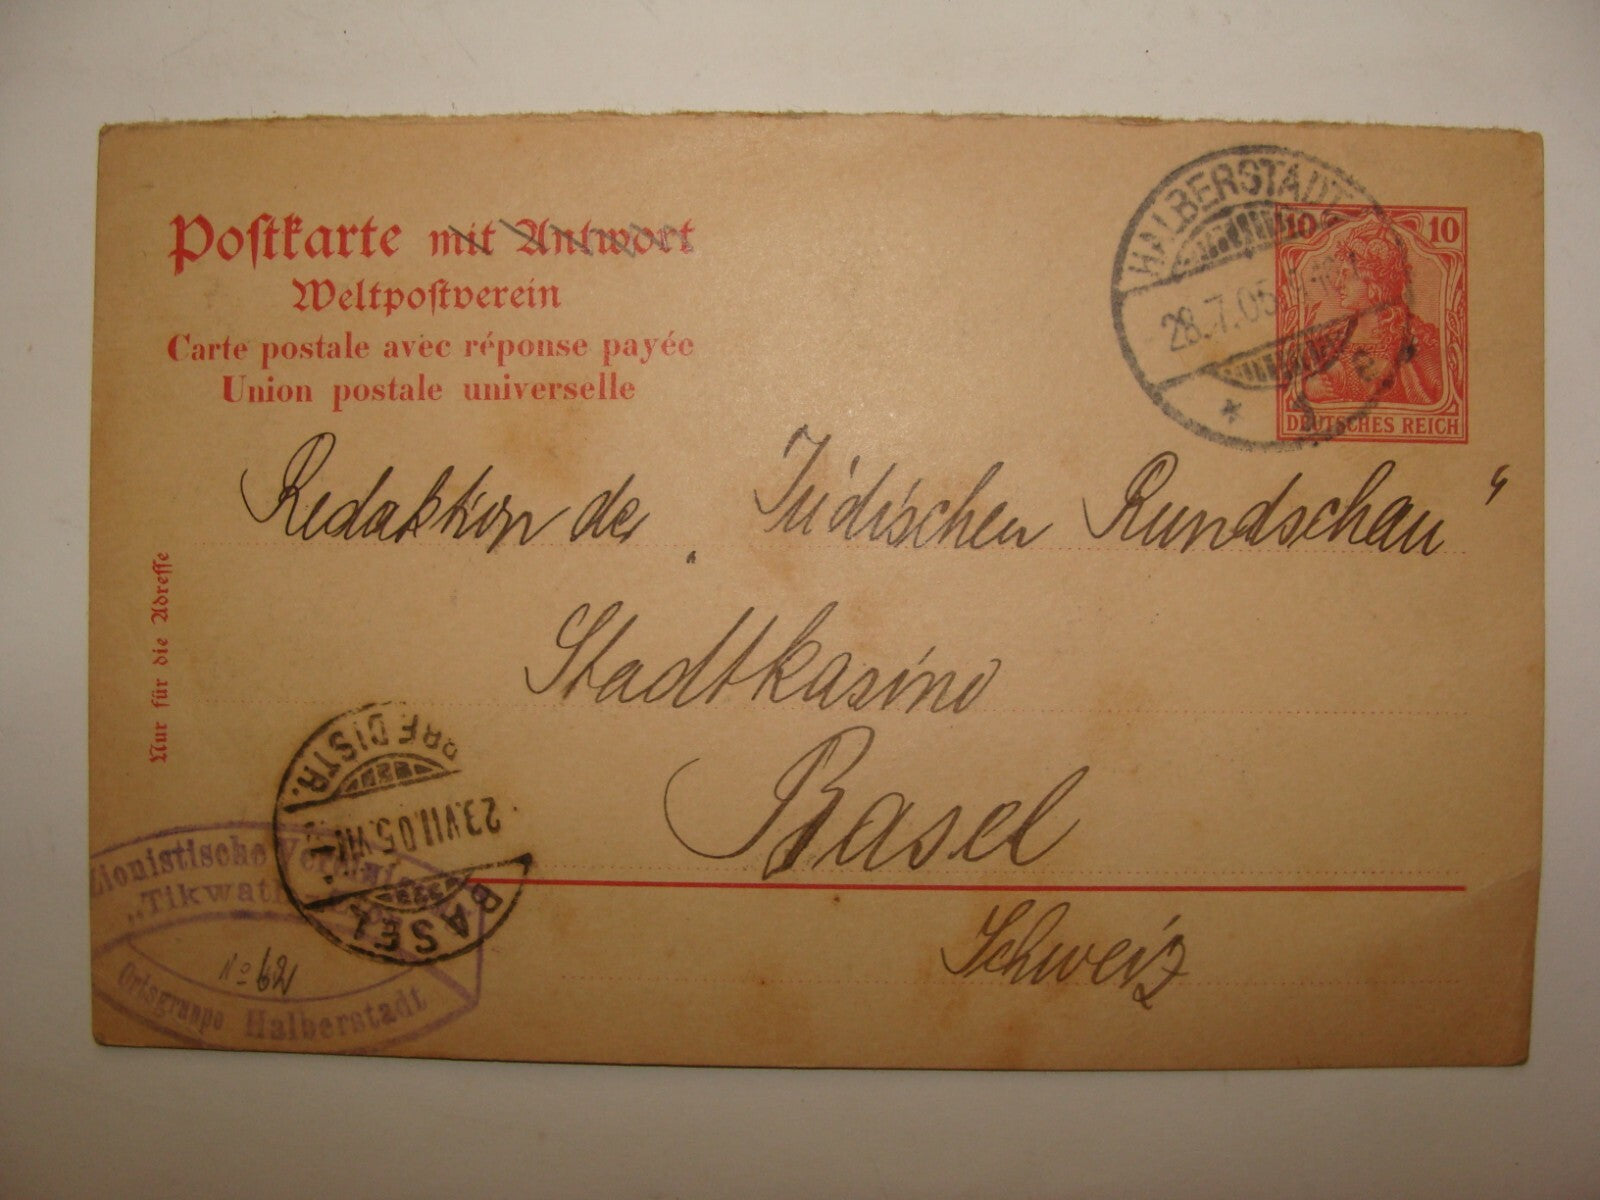 Postkarte mit Antwort
Weltpostverein
Carte postale avec réponse payée
Union postale universelle
Nur für die Adresse
HALBERSTADT
28.7.05
* 2 *
10 10
DEUTSCHES REICH
Redaktion der
„Jüdischen Rundschau“
Stadtkasino
Basel
Schweiz
BASEL
VII.05.VII
BRF. DISTR.
Zionistische Vereinig
„Tikwath
Ortsgruppe Halberstadt
No